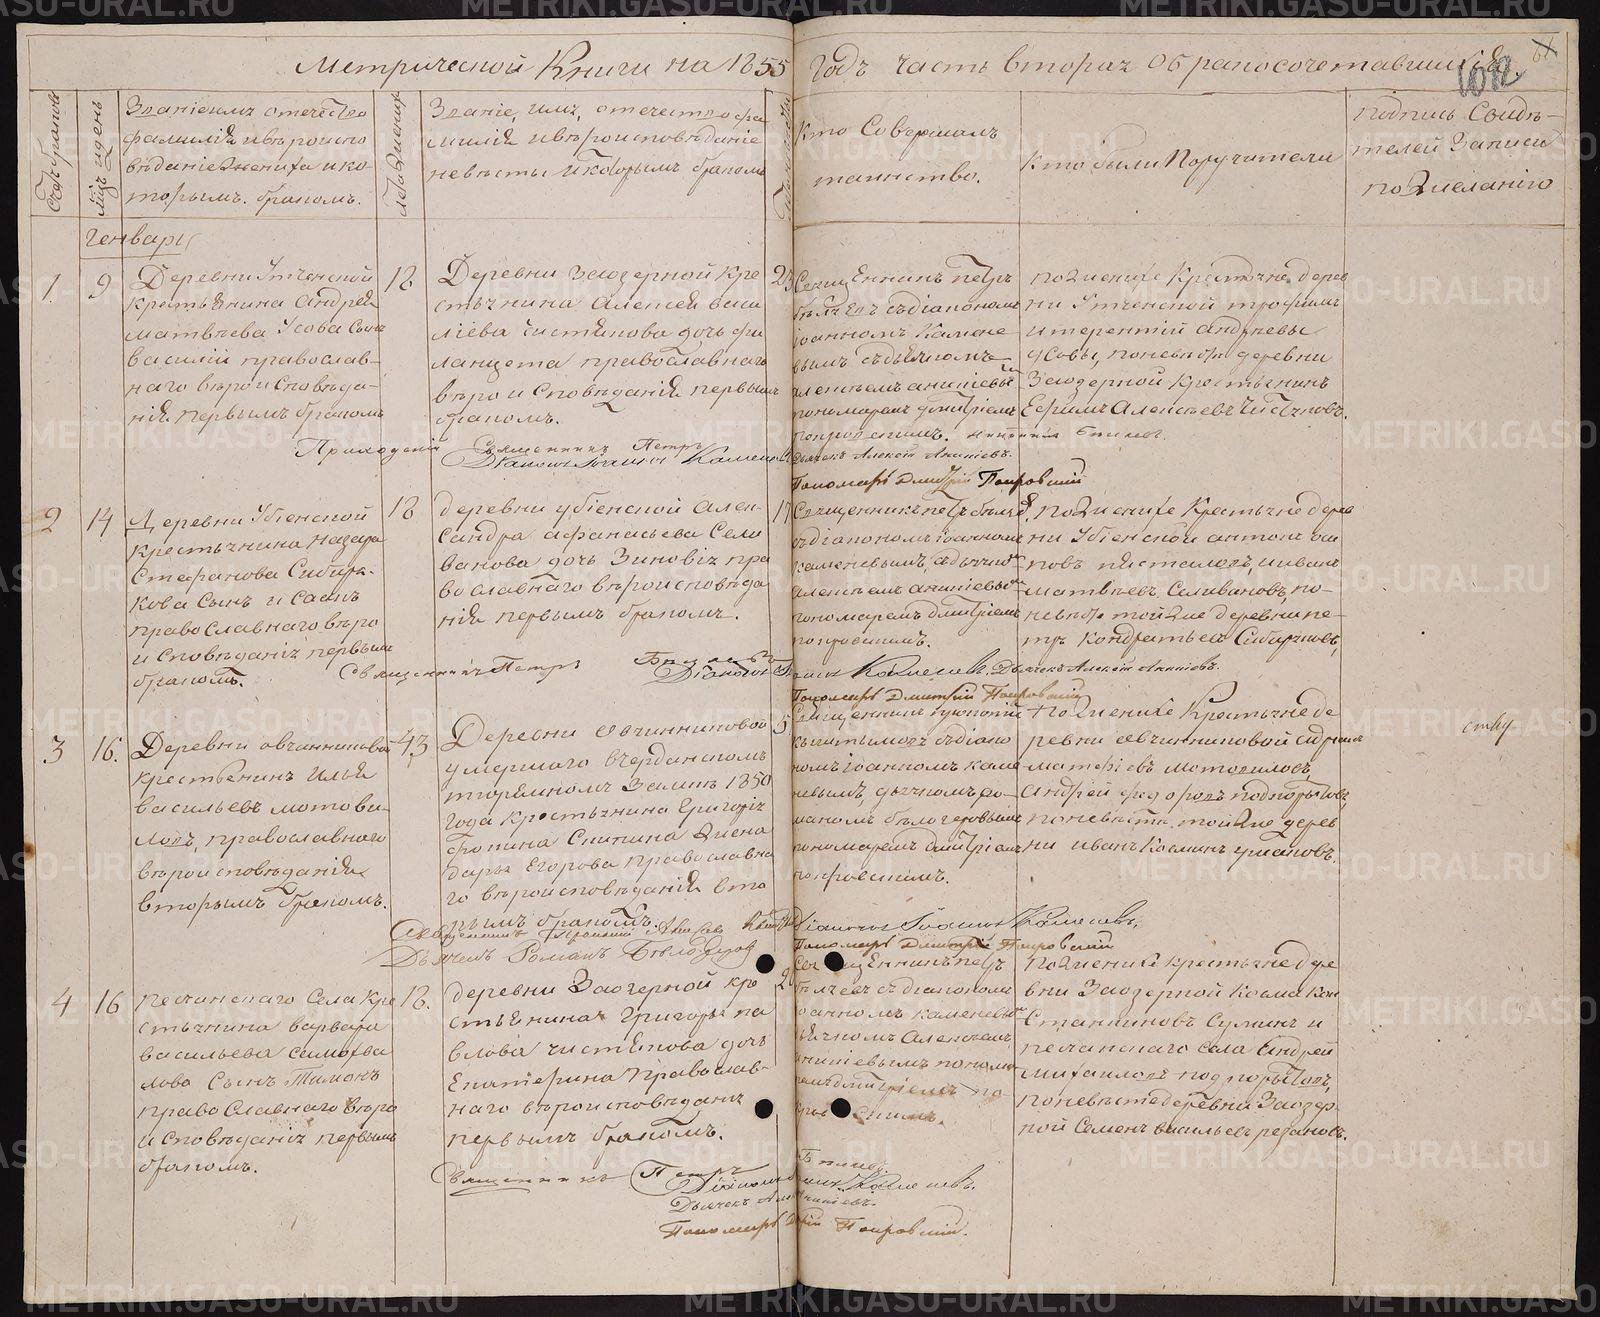 Метрической Книги на 1855 годъ часть вторая о бракосочетавшихся
61
Счетъ браковъ
Мцъ и день
Званіе имя отечество
фамилія и вѣроиспо
вѣданіе жениха и ко
торымъ бракомъ.
лѣта жениха
Званіе, имя, отечество фа
милія и вѣроисповѣданіе
невѣсты и которымъ бракомъ
лѣта невѣсты
Кто Совершалъ
таинство.
Кто были Поручители
подпись Свидѣ-
телей Записи
по желанію
Генварь
1.
9
Деревни Утченской
крестьянина Андрея
Матвѣева Усова Сынъ
Василій православ-
наго вѣроисповѣда-
нія первымъ бракомъ
18
Деревни Заозерной кре
стьянина Алексея Васи
ліева Чистякова дочь фи
лацета православнаго
вѣроисповѣданія первымъ
бракомъ.
23
Священникъ Петръ
Бѣлчевъ съ діакономъ
Іоанномъ Камене
вымъ съ дьячкомъ
Алексѣемъ Ананіевы
пономаремъ Дмитріемъ
покровскимъ.
по женихѣ Крестьяне дерев
ни Утченской трофимъ
и терентій андреевы
усовы, по невѣстѣ деревни
Заозерной Крестьянинъ
Ефимъ Алексѣевъ Чистяковъ.
Приходскій Священникъ Петръ
Діаконъ Іоаннъ Каменевъ
Дьячекъ Алексій Ананіевъ.
Пономарь Дмитрій Покровскій
2
14
Деревни Убіенской
крестьянина Назара
Стефанова Сибиря-
кова Сынъ Исаакъ
православнаго вѣро
исповѣданія первымъ
бракомъ.
18
деревни убіенской Алек-
сандра афанасьева Сели
ванова дочь Зиновія пра
вославнаго вѣроисповѣда
нія первымъ бракомъ.
17
Священникъ петръ бѣлчев
съ діакономъ іоанномъ
каменевымъ, съ дьячко
алексѣемъ ананіевы
пономаремъ Дмитріемъ
покровскимъ.
по женихѣ Крестьяне дерев
ни Убіенской антонъ
иванъ
матвѣевъ Селивановъ, по
невѣстѣ той же деревни пе-
тръ кондратьевъ Сибиряковъ,
Священникъ Петръ
Діаконъ Іоаннъ Каменевъ. Дьячекъ Алексій Ананіевъ.
Пономарь Дмитрій Покровскій
3
16.
Деревни овчинникова
крестьянинъ Илья
васильевъ мотови-
ловъ, православнаго
вѣроисповѣданія
вторымъ бракомъ.
43
Деревни овчинниковой
умершаго въ Чердынскомъ
тюремномъ Замкѣ 1850
года крестьянина Григорія
Фокина Скикина жена
дарья Егорова православна
го вѣроисповѣданія вто
рымъ бракомъ.
5
Священникъ
съ діако
номъ іоанномъ каме
невымъ, дьячкомъ ро-
маномъ бѣлозеровымъ
пономаремъ Дмитріемъ
покровскимъ.
По женихѣ Крестьяне де
ревни овчинниковой
матфіевъ мотовиловъ,
андрей федоровъ подкорытовъ,
по невѣстѣ той же дерев
ни иванъ Косминъ ушаковъ.
Дьячекъ Романъ Бѣлозеровъ
Діаконъ Іоаннъ Каменевъ,
Пономарь Дмитрій Покровскій
4
16
песчанскаго Села Кре
стьянина варвара
васильева самотва
лова Сынъ Тимонъ
православнаго вѣро
исповѣданія первымъ
бракомъ.
18.
деревни Заозерной кре
стьянина Григорья па
влова чистякова дочь
Екатерина православ-
наго вѣроисповѣданія
первымъ бракомъ.
Священникъ петръ
бѣлчевъ съ діакономъ
іоанномъ каменевы
дьячкомъ Алексѣемъ
ананіевымъ понома
ремъ дмитріемъ по
кровскимъ.
по женихѣ крестьяне дере
вни Заозерной Косма Кон
стантиновъ Суминъ и
песчанскаго села Андрей
михаиловъ подкорытовъ,
по невѣстѣ деревни Заозер-
ной Семенъ васильевъ резановъ.
Священникъ Петръ
Діаконъ Іоаннъ Каменевъ.
Дьячекъ Алексій Ананіевъ.
Пономарь Дмитрій Покровскій.
METRIKI.GASO-URAL.RU